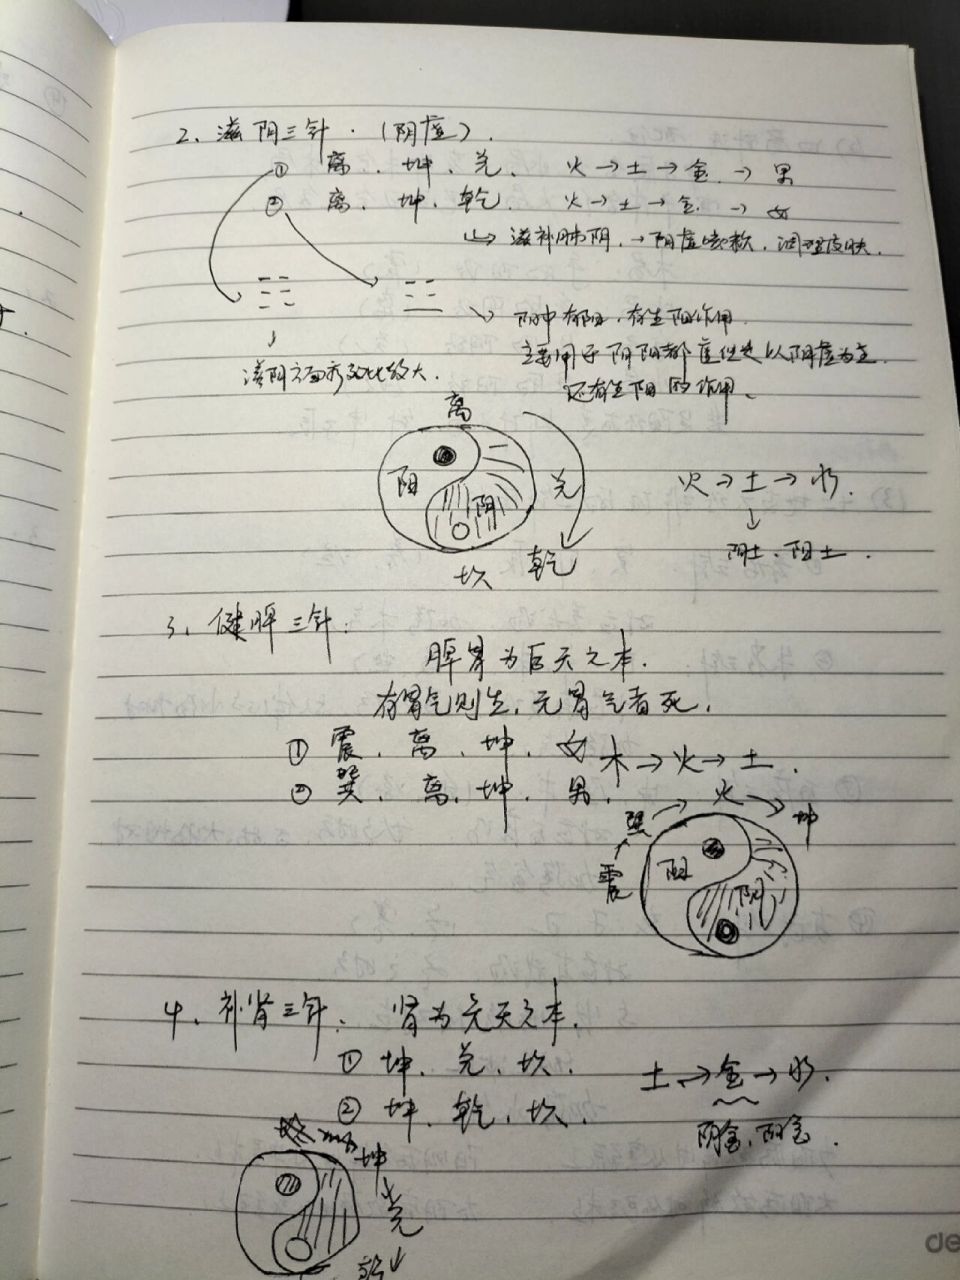 2、滋阴三针.(阴虚).
① 离、坤、兑、 火→土→金→男
② 离、坤、乾、 火→土→金→女
滋补肺阴,→阴虚咳嗽,调理皮肤.
阴中有阳,有生阳作用.
主要用于阴阳都虚但是以阴虚为主
滋阴方面疗效比较大.
还有生阳的作用、
离
阳
阴
兑
乾
坎
火→土→水.
↓
阴土、阳土.
3、健脾三针:
脾胃为后天之本.
有胃气则生,无胃气者死.
① 震、离、坤、女
木→火→土.
② 巽、离、坤、男、
震→巽→火→坤
阳
阴
4、补肾三针: 肾为先天之本.
① 坤、兑、坎.
土→金→水.
② 坤、乾、坎、
阴金、阳金.
坤
兑
乾
de